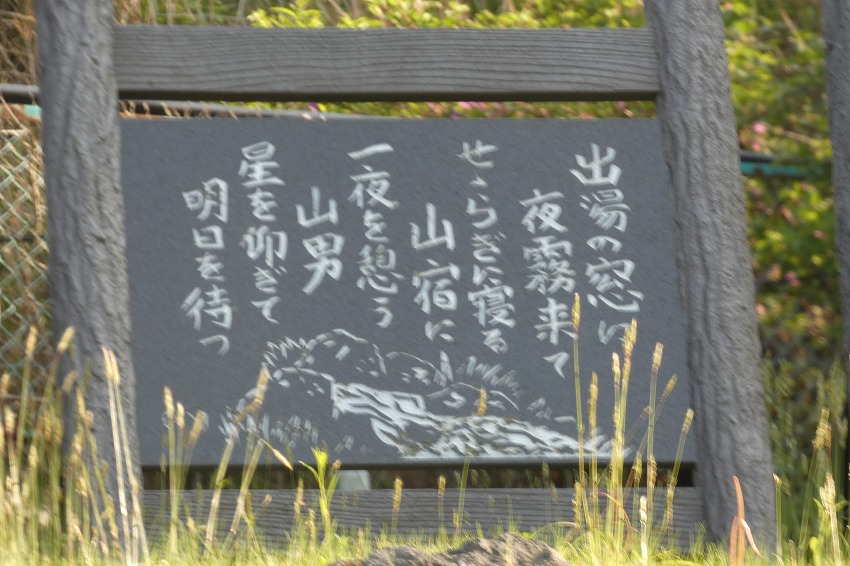 出湯の窓に
夜霧来て
せゝらぎに寝る
山宿に
一夜を憩う
山男
星を仰ぎて
明日を待つ